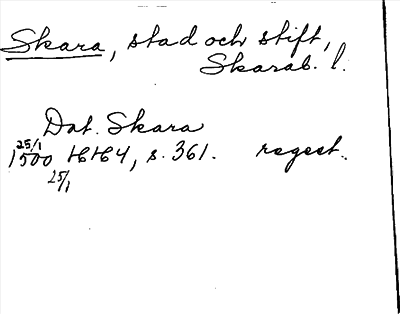 Skara, stad och stift,
Skarab. l.
Dat. Skara
25/1
1500 HH 4, s. 361. regest.
25/1